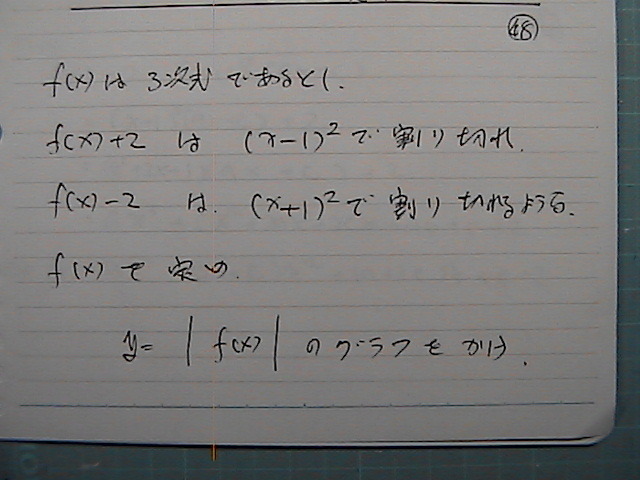 48
f(x) は 3次式 であるとし.
f(x)+2 は (x-1)² で 割り切れ.
f(x)-2 は. (x+1)² で 割り切れるような.
f(x) を 定め.
y= | f(x) | のグラフを かけ.